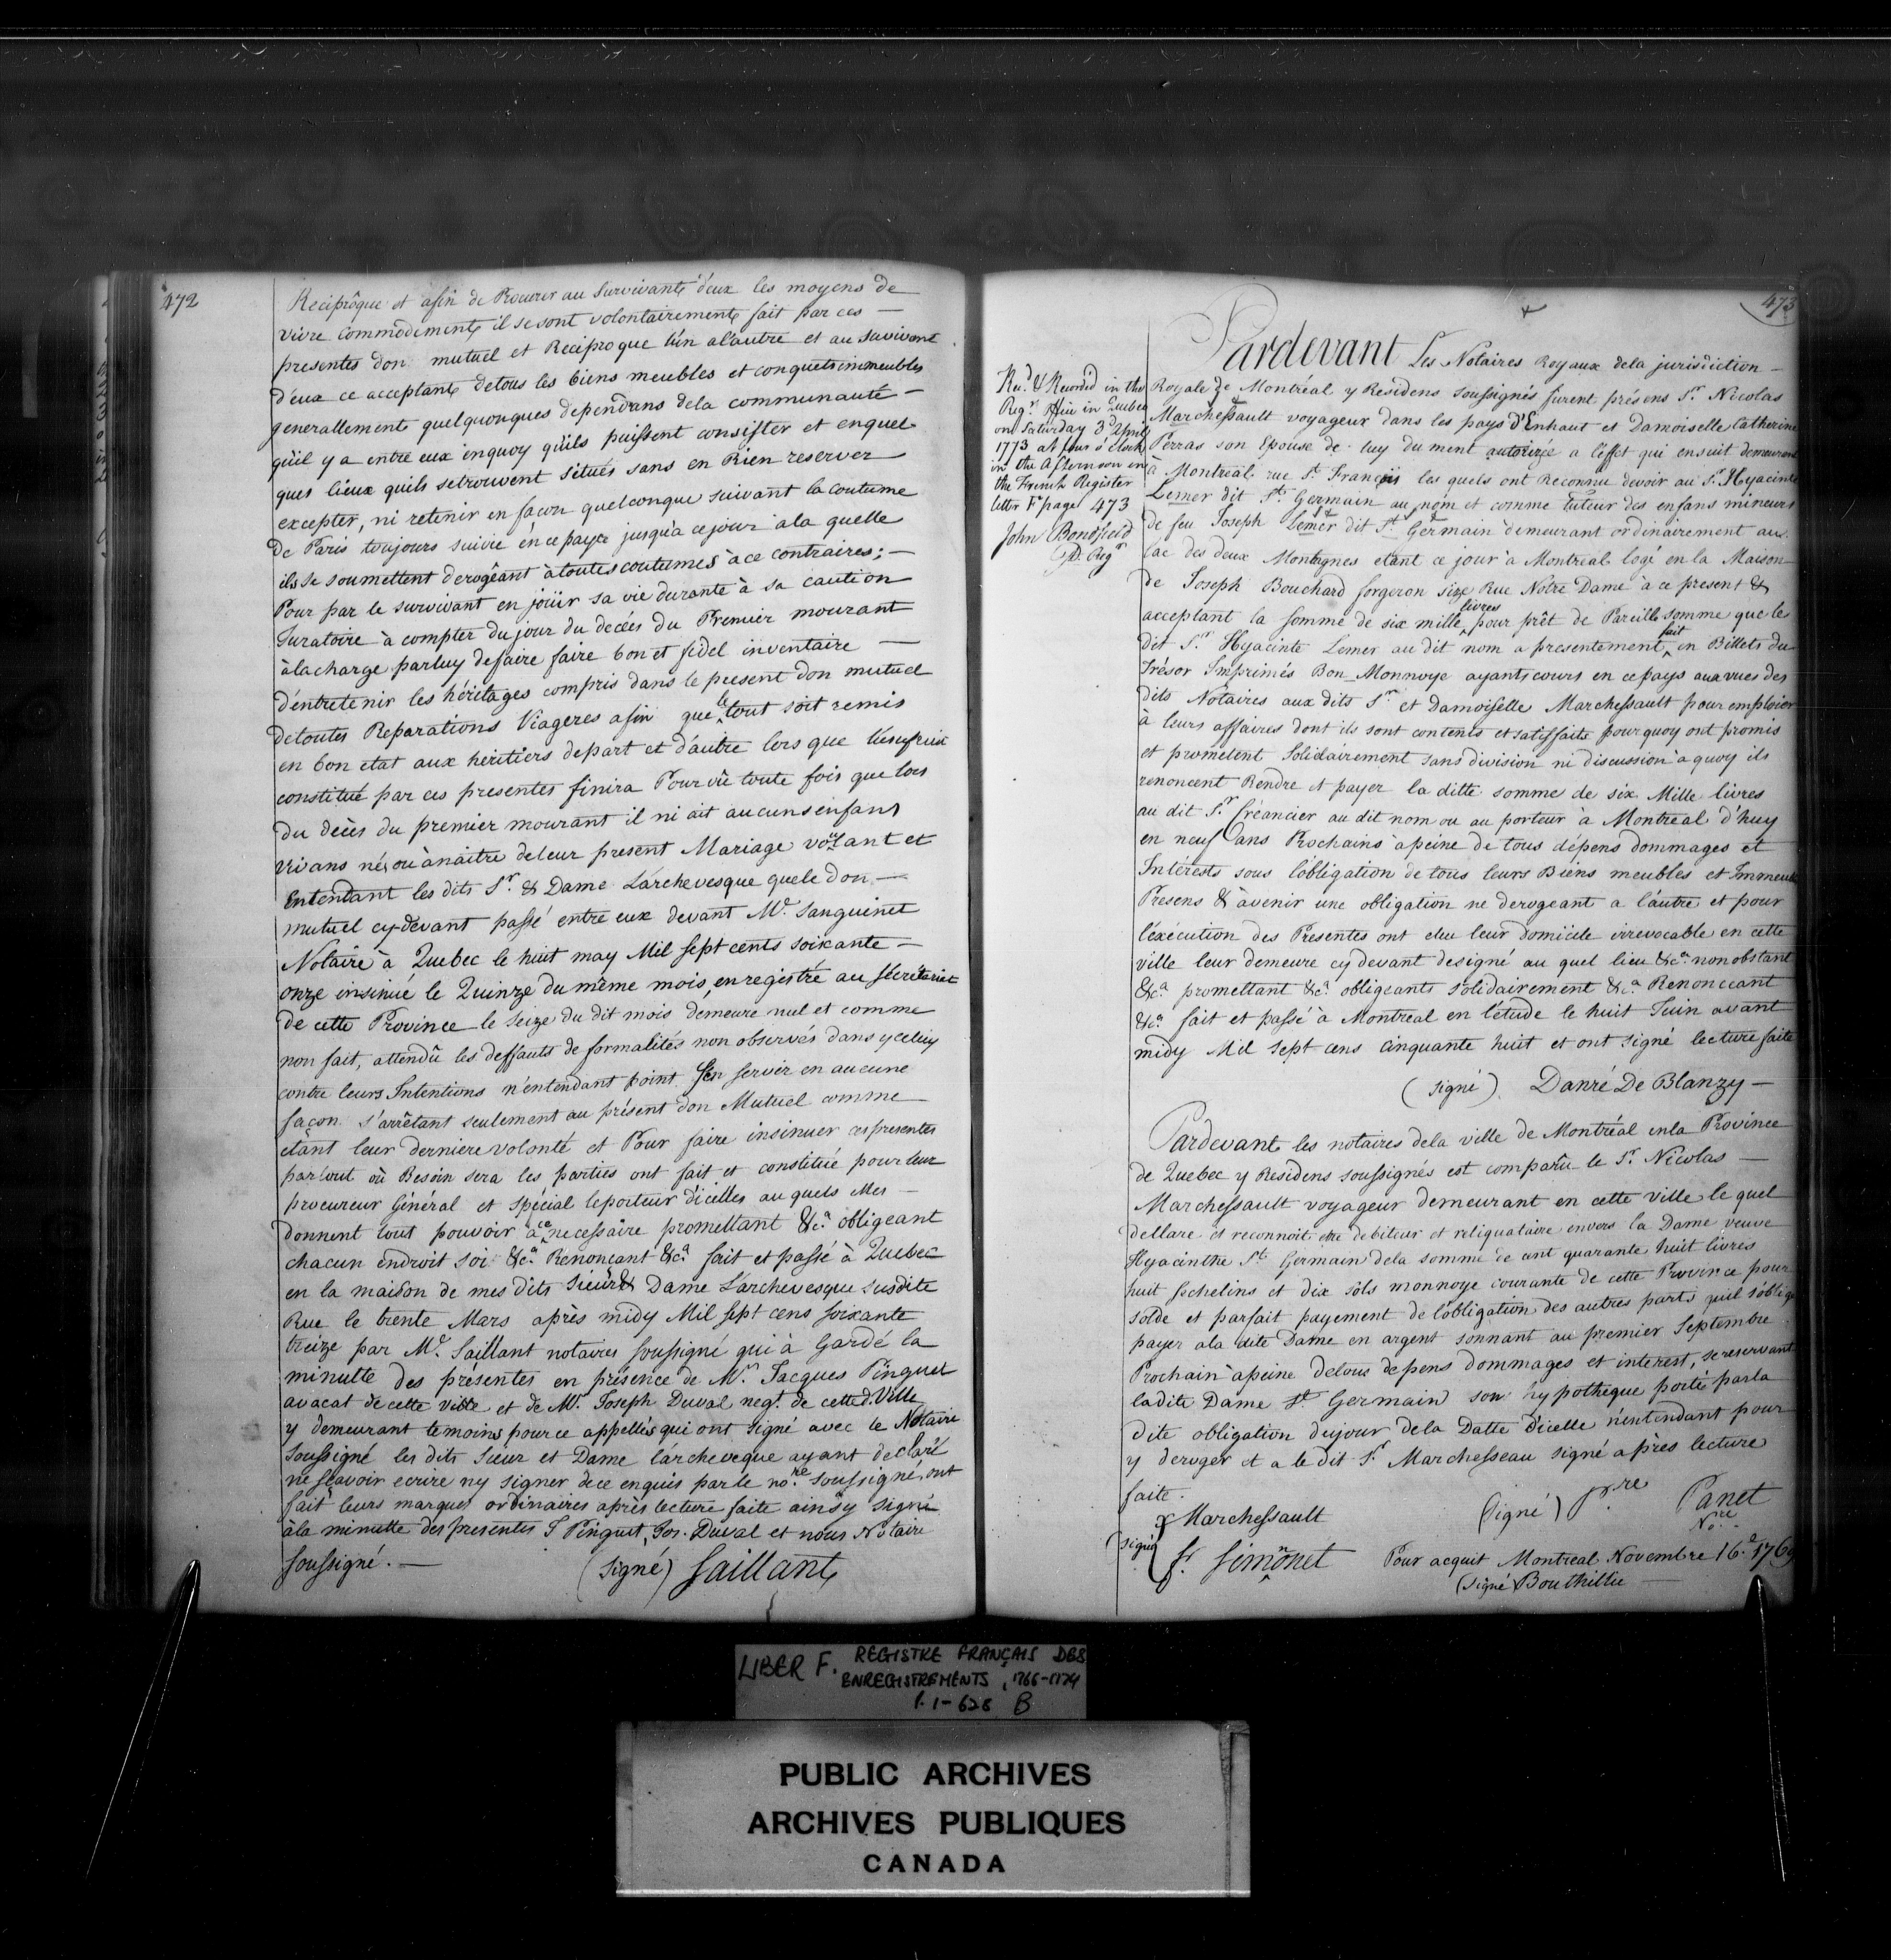 472
Reciprôque et afin de Procurer au Survivant d'eux les moyens de
vivre commodement il se sont volontairement fait par ces —
presentes don mutuel et Reciproque l'un a l'autre et au survivant
d'eux ce acceptant de tous les biens meubles et conquets immeubles
generallement quelquonques dependans dela communauté —
qu'il y a entre eux inquoy qu'ils puissent consister et enquel
ques lieux quils se trouvent situés sans en Rien reserver
excepter, ni retenir en facon quelconque suivant la coutume
De Paris toujours suivie en ce payce jusqu'a ce jour a la quelle
ils se soumettent derogêant à toutes coutumes à ce contraires; —
Pour par le survivant en joüir sa vie durante à sa caution
Juratoire à compter du jour du decés du Premier mourant
à la charge par luy de faire faire bon et fidel inventaire —
d'entretenir les héritages compris dans le present don mutuel
de toutes Reparations Viageres afin que le tout soit remis
en bon etat aux heritiers de part et d'autre lors que l'usufruit
constitué par ces presentes finira Pourvû toute fois que lors
du decès du premier mourant il ni ait aucuns enfans
vivans nés ou à naitre de leur present Mariage voulant et
Entendant les dits Sr. & Dame Larchevesque que le don —
mutuel cy-devant passé entre eux devant Me. Sanguinet
Notaire à Quebec le huit may Mil sept cents soixante —
onze insinué le Quinze du même mois, enregistré au sécrétariat
de cette Province le seize du dit mois demeure nul et comme
non fait, attendû les deffauts de formalités non observés dans yceluy
contre leurs Intentions n'entendant point s'en servir en aucune
façon s'arrêtant seulement au présent don Mutuel comme
etant leur derniere volonté et Pour faire insinuer ces presentes
partout où Besoin sera les parties ont fait et constitué pour leur
procureur Général et spécial le porteur d'icelles au quels Elles —
donnent tout pouvoir a ce necessaire promettant &ca. obligeant
chacun endroit soi &ca. Renonçant &ca. fait et passé à Quebec
en la maison de mes dits Sieur & Dame Larchevesque susdite
Rue le trente Mars après midy Mil sept cens soixante
treize par Me. Saillant notaire soussigné qui à Gardé la
minutte des présentes en présence de Mr. Jacques Pinguet
avocat de cette ville et de Mr. Joseph Duval negt. de cette d. Ville
y demeurant temoins pour ce appellés qui ont signé avec le Notaire
soussigné les dits Sieur et Dame l'archeveque ayant declaré
ne sçavoir ecrire ny signer de ce enquis par le nore. soussigné, ont
fait leurs marques ordinaires après lecture faite ainsy signé
à la minutte des presentes J Pinguet, Jos. Duval et nous Notaire
soussigné. —
(Signé) Saillant
473
Pardevant Les Notaires Royaux dela jurisdiction —
Royale de Montréal y Residens soussignés furent présens Sr. Nicolas
Marchessault voyageur dans les pays d'Enhaut et Damoiselle Catherine
Perras son Epouse de luy dument autorizée a l'effet qui ensuit demeurant
à Montréal rue St. François les quels ont Reconnu devoir au Sr. Hyacinte
Lemer dit St. Germain au nom et comme Tuteur des enfans mineurs
de feu Joseph Lemer dit St. Germain demeurant ordinairement au
lac des deux Montagnes etant ce jour à Montreal logé en la Maison
de Joseph Bouchard forgeron size Rue Notre Dame à ce present &
acceptant la somme de six mille livres pour prêt de Pareille somme que le
dit Sr. Hyacinte Lemer au dit nom a presentement fait en Billets du
Trésor Imprimés Bon Monnoye ayants cours en ce pays aux vues des
dits Notaires aux dits Sr. et Damoiselle Marchessault pour emploier
à leurs affaires dont ils sont contents et satisfaits pourquoy ont promis
et promettent Solidairement sans division ni discussion a quoy ils
renoncent Rendre et payer la ditte somme de six Mille livres
au dit Sr. Créancier au dit nom ou au porteur à Montreal d'huy
en neuf ans Prochains à peine de tous dépens dommages et
Intérests sous l'obligation de tous leurs Biens meubles et Immeubl
Presens & àvenir une obligation ne derogeant a l'autre et pour
l'éxécution des Presentes ont elu leur domicile irrevocable en cette
ville leur demeure cy devant designé au quel lieu &ca. nonobstant
&ca. promettant &ca. obligeants solidairement &ca. Renonceant
&ca. fait et passé à Montreal en l'étude le huit Juin avant
midy Mil sept cens cinquante huit et ont signé lecture faite
(signé) Danré De Blanzy —
Recd. & Recorded in the
Regrs. Office in Quebec
on Saturday 3d April
1773 at four o'clock
in the Afternoon in
the French Register
letter F page 473
John Bondfield
Dr. Regr
Pardevant les notaires dela ville de Montréal en la Province
de Quebec y Residens soussignés est comparu le Sr. Nicolas —
Marchessault voyageur demeurant en cette ville le quel
dellare et reconnoit etre debiteur et reliquataire envers la Dame veuve
Hyacinthe St. Germain dela somme de cent quarante huit livres
huit schelins et dix sols monnoye courante de cette Province pour
solde et parfait payement de l'obligation des autres parts qu'il s'oblige
payer a la dite Dame en argent sonnant au premier Septembre
Prochain à peine detous depens dommages et interest, se reservant
ladite Dame St Germain son hypotheque porté par la
dite obligation du jour dela Datte d'icelle n'entendant pour
y deroger et a le dit Sr. Marchesseau signé après lecture
faite.
Marchessault (signé) Prre Panet Nore.
(signé) fr. Simonet Pour acquit Montreal Novembre 16. 1769
(signé) Bouthillie —
LIBER F. REGISTRE FRANÇAIS DES
ENREGISTREMENTS, 1766-1774
P. 1-628 B
PUBLIC ARCHIVES
ARCHIVES PUBLIQUES
CANADA